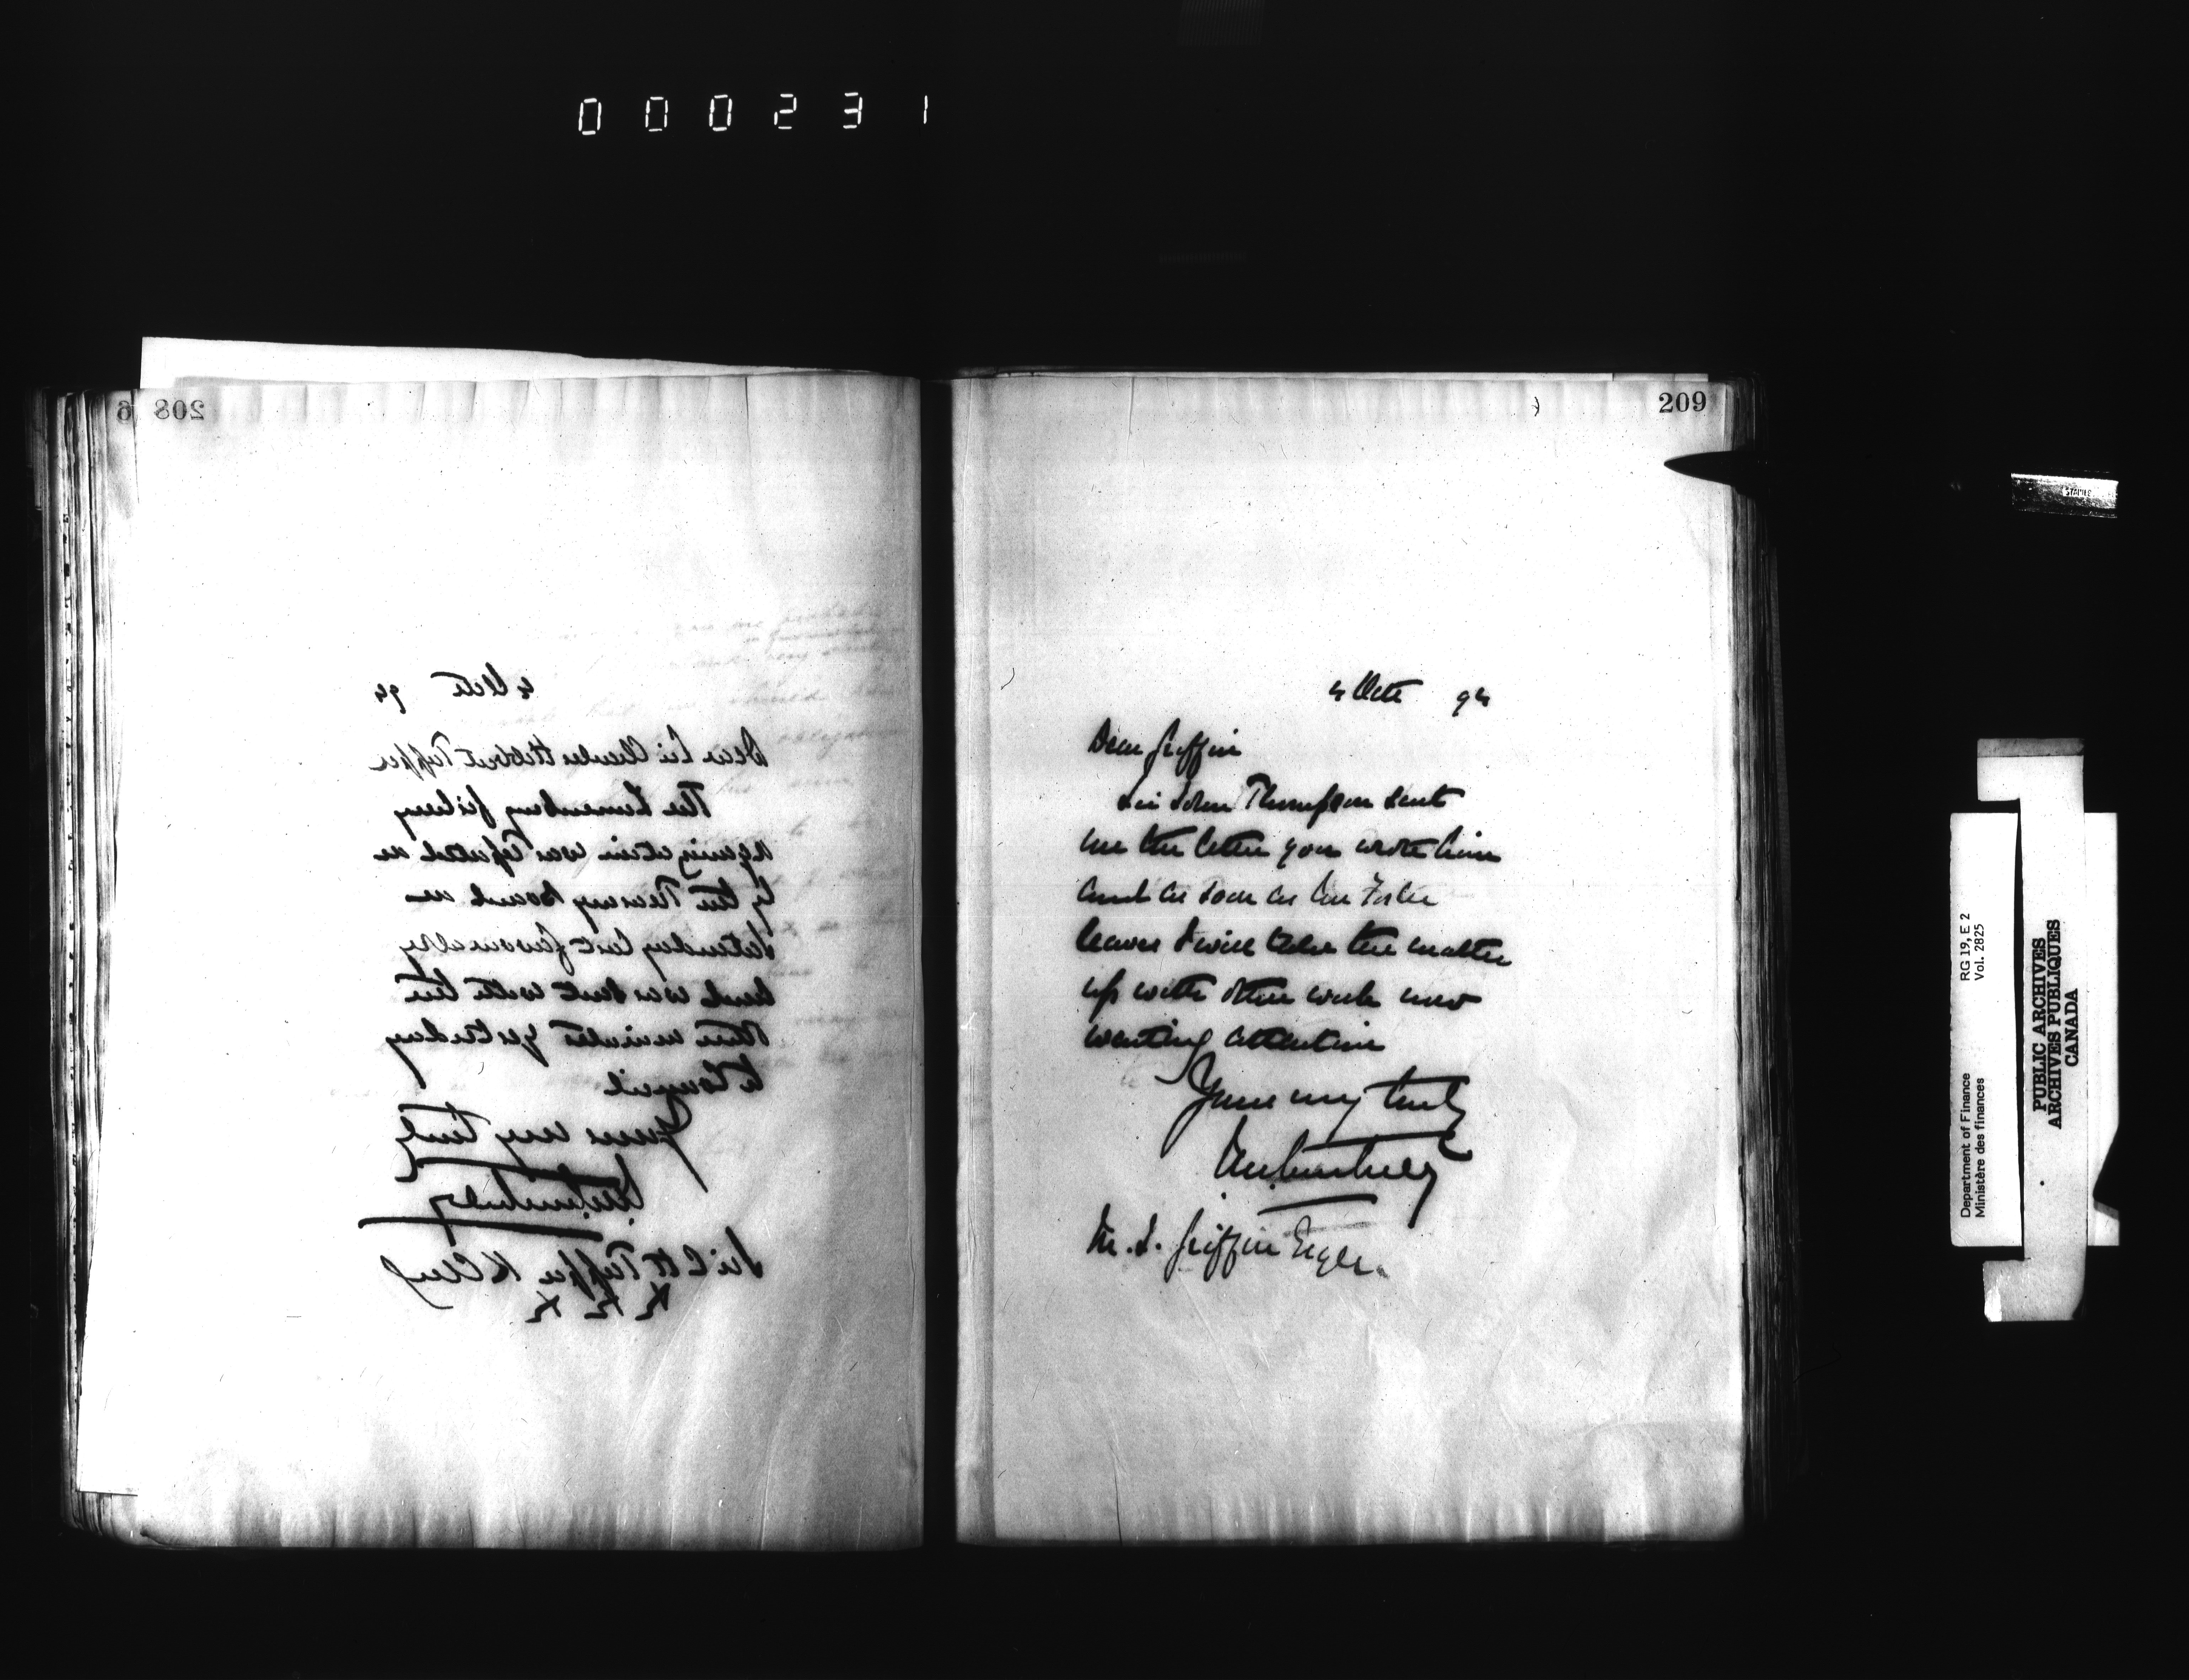 000231
208
6
4 Octr 94
Dear Sir Charles Hibbert Tupper
The Lunenburg fishery
was reported on
by the Treasury Board on
Saturday last favourably
and was sent with the
other minutes yesterday
to Council
Yours very truly
Sir C H Tupper KCMG
209
4 Octr 94
Dear Griffin
Sir John Thompson sent
me the letter you wrote him
and as soon as Mr Foster
leaves I will take the matter
up with other work now
wanting attention
Yours very truly
M. J. Griffin Esqre.
Department of Finance RG 19, E 2
Ministère des finances Vol. 2825
PUBLIC ARCHIVES
ARCHIVES PUBLIQUES
CANADA